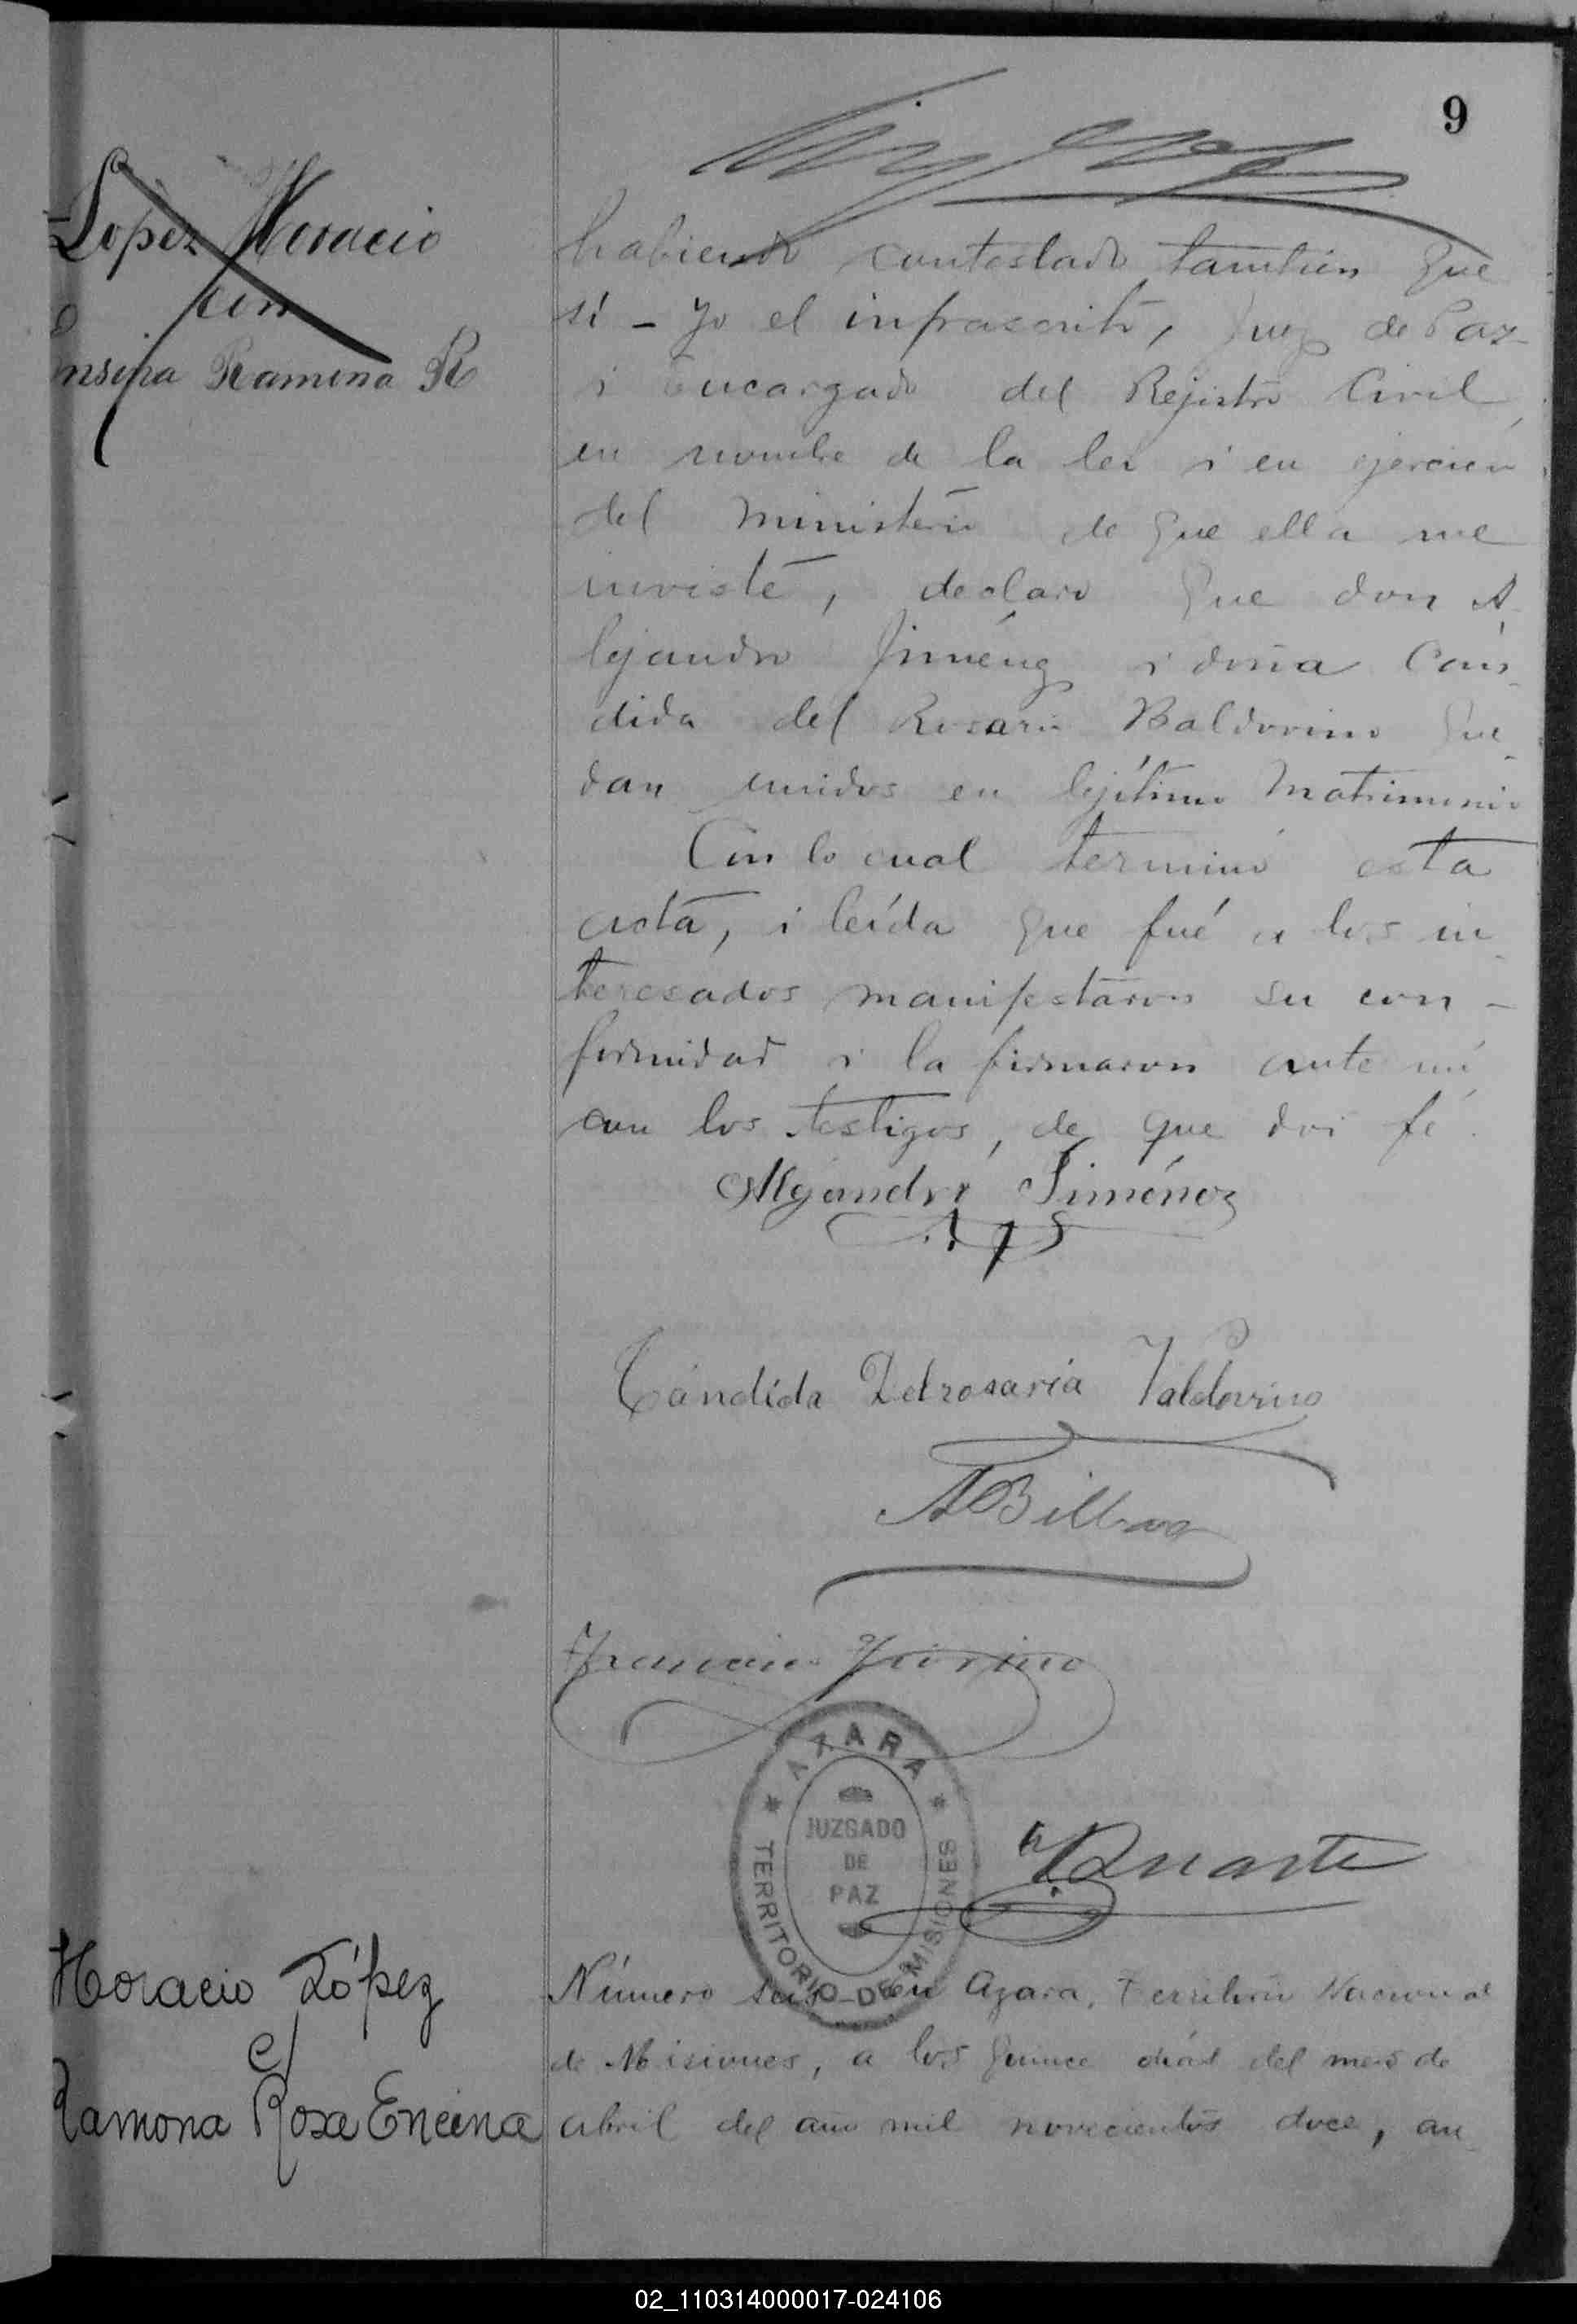 9
Lopez Horacio
con
Ensina Ramona R
habiendo contestado también que
sí – Yo el infrascrito, Juez de Paz
i Encargado del Rejistro Civil,
en nombre de la lei i en ejercicio
del ministerio de que ella me
inviste, declaro que don A
lejandro Jiménez i doña Cán-
dida del Rosario Baldovino que-
dan unidos en lejítimo Matrimonio
Con lo cual terminó esta
acta, i leída que fué a los in-
teresados manifestaron su con-
formidad i la firmaron ante mí
con los testigos, de que doi fé.
Alejandro Jiménez
Cándida Delrosaria Valdovino
ABilbao
Francisco
AZARA
JUZGADO
DE
PAZ
TERRITORIO DE MISIONES
Duarte
Horacio López
c/
Ramona Rosa Encina
Número seis – En Azara, Territorio Nacional
de Misiones, a los quince días del mes de
abril del año mil novecientos doce, an-
02_110314000017-024106